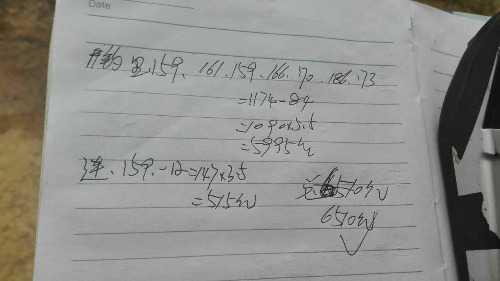 Date
159. 161. 159. 166. 170. 186. 173
=1174-84
=1090x5.5
=5995元
159.-12=147x3.5
=515元
6510元